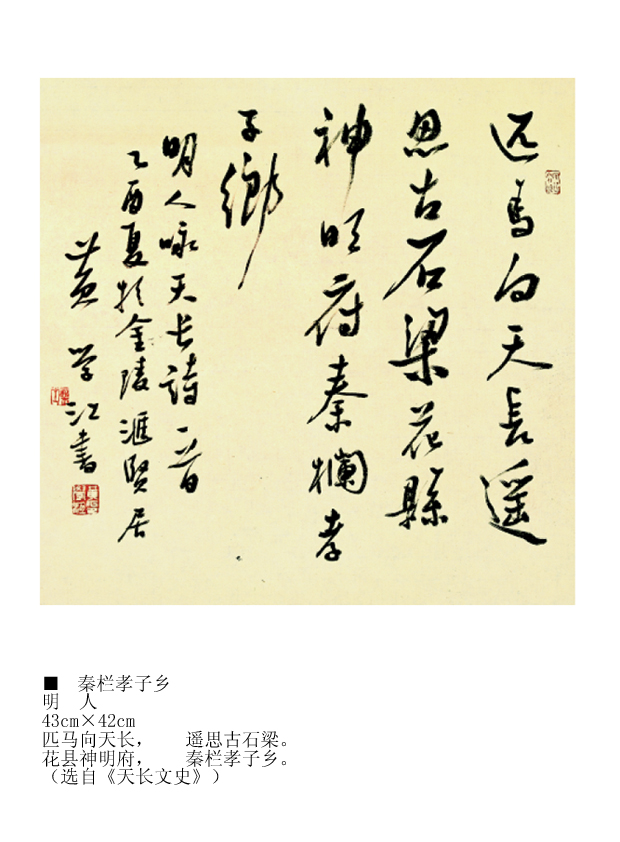 匹馬向天長遥
思古石梁花縣
神明府秦欄孝
子鄉
明人咏天长詩一首
乙酉夏於金陵滙贤居
黄学江書
■ 秦栏孝子乡
明 人
43cm×42cm
匹马向天长， 遥思古石梁。
花县神明府， 秦栏孝子乡。
（选自《天长文史》）